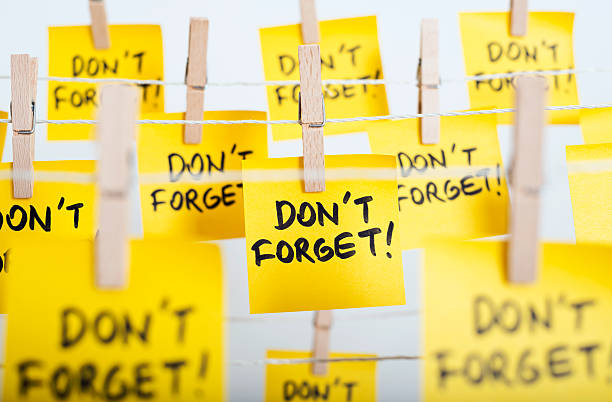 DON'T
FORGET!
DON'T
FORGET!
DON'T
FORGET!
DON'T
FORGET!
DON'T
FORGET!
DON'T
DON'T
FORGET!
DON'T
FORGET!
DON'T
FORGET!
DON'T